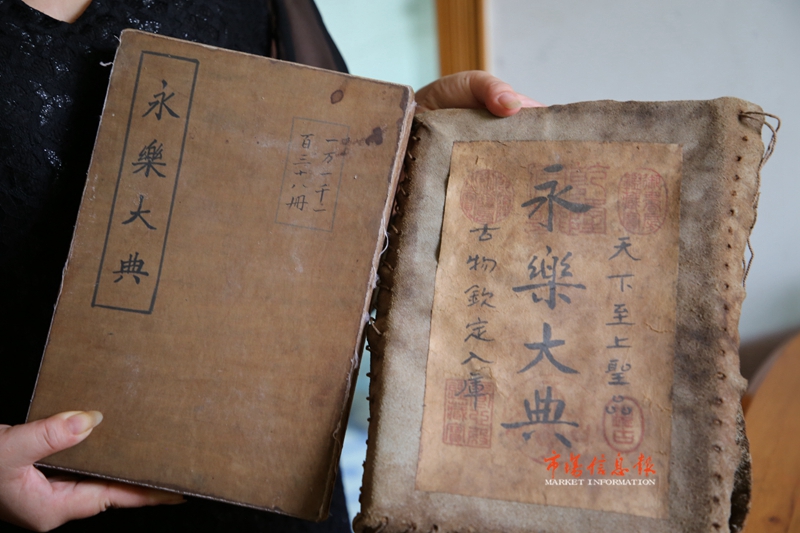 永樂大典
一万一千一
百三十八冊
天下至上聖品
永樂大典
古物欽定入庫
市场信息报
MARKET INFORMATION